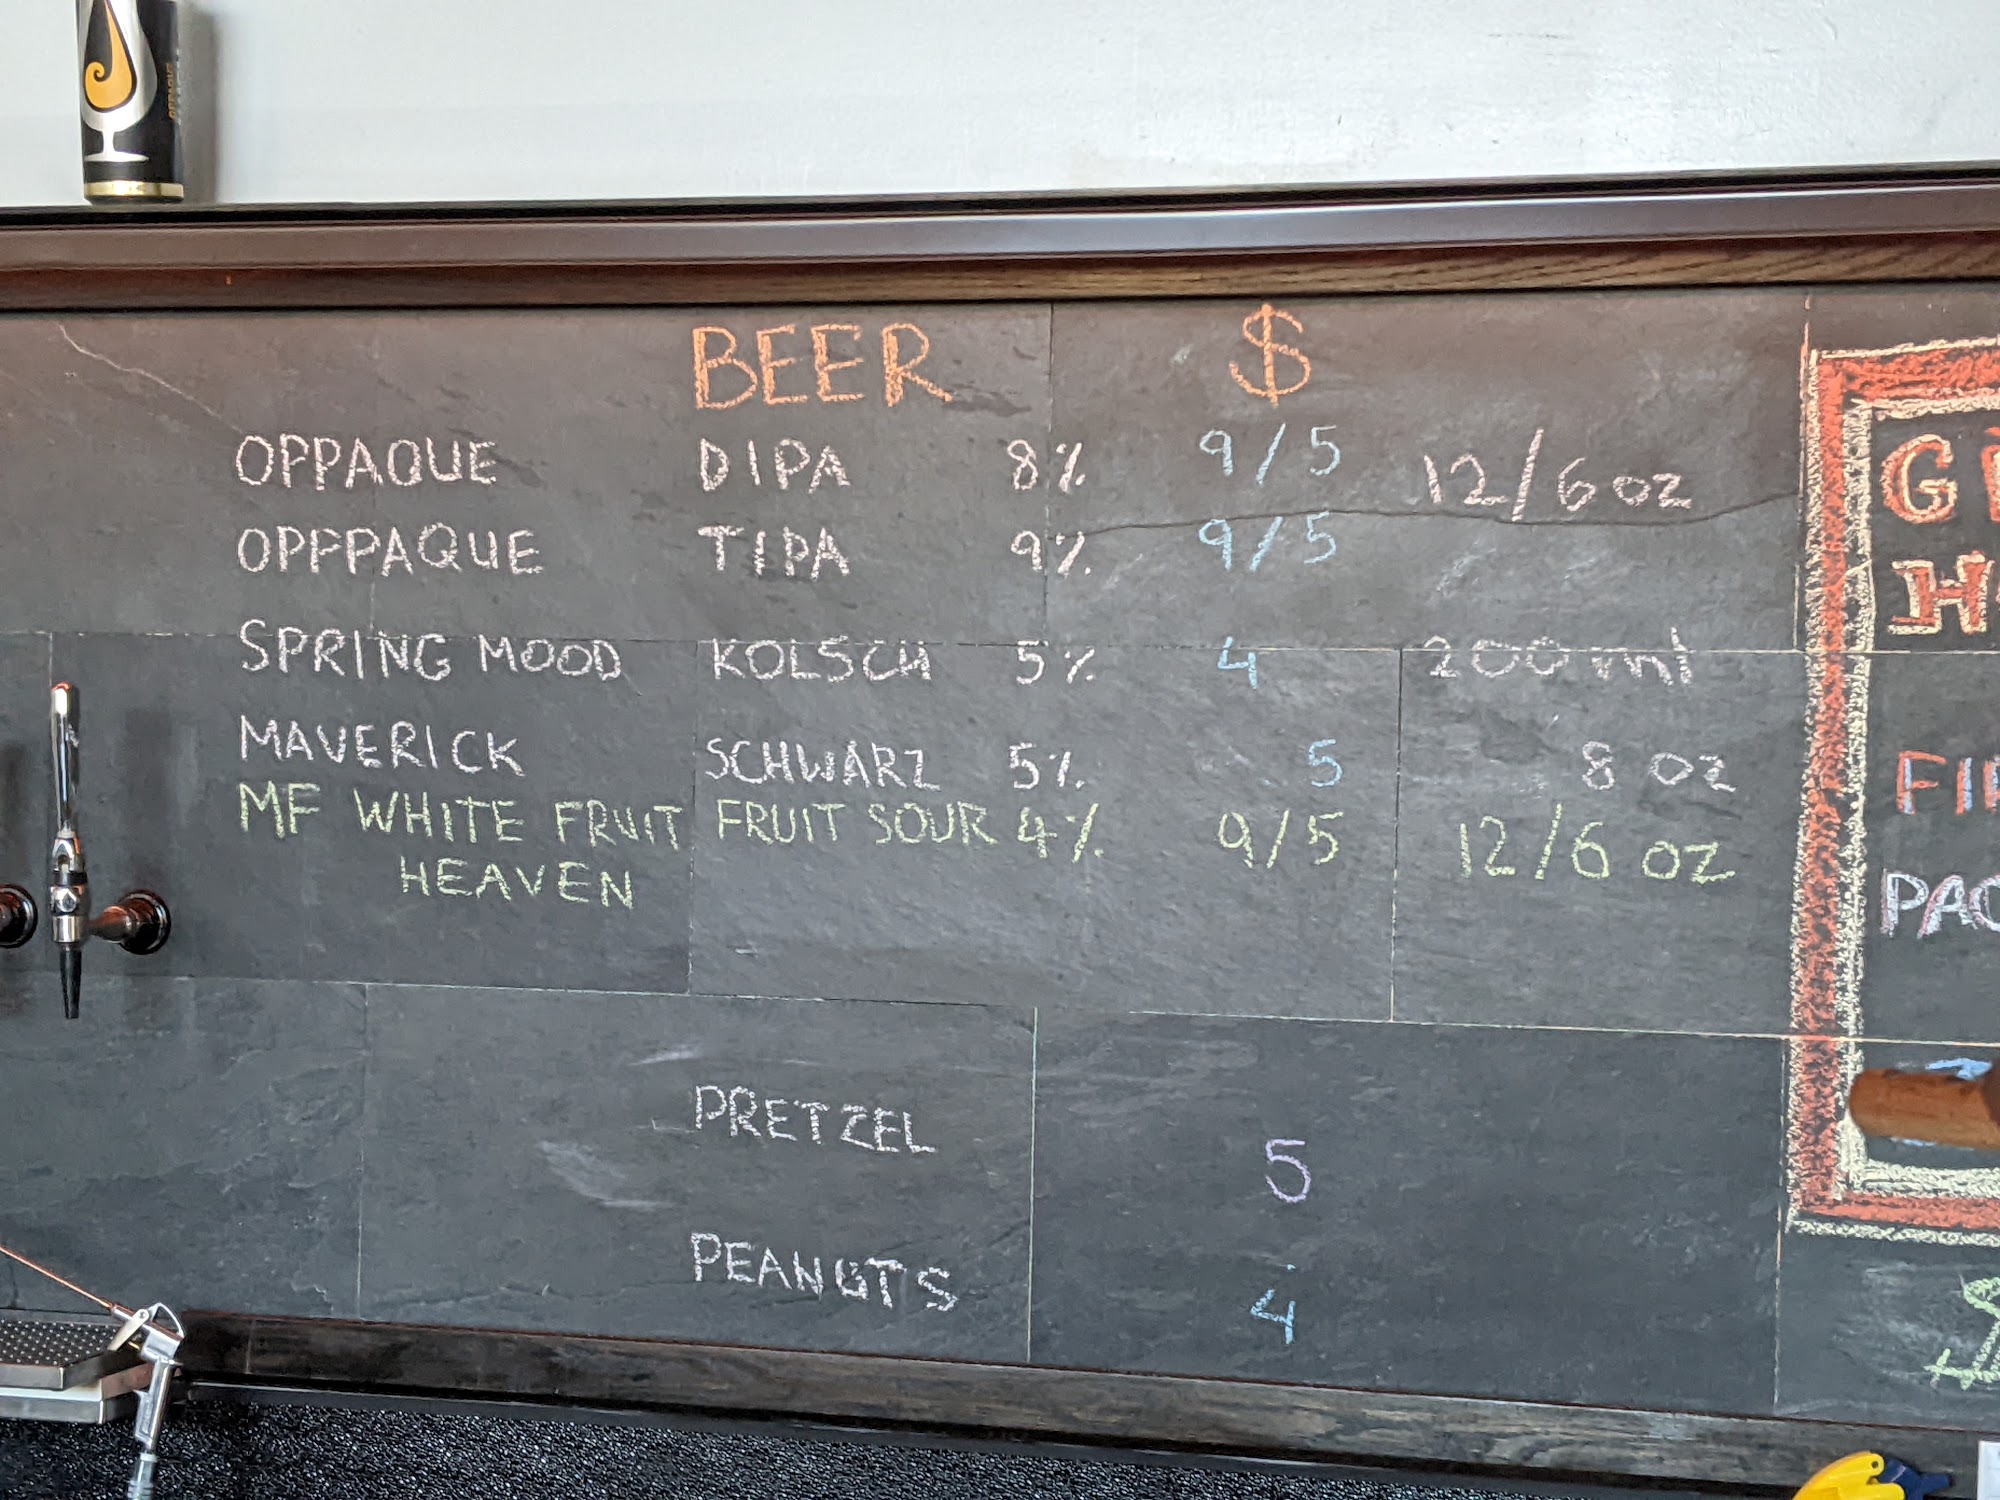 BEER $
OPPAQUE DIPA 8% 9/5 12/6 oz
OPPPAQUE TIPA 9% 9/5
SPRING MOOD KOLSCH 5% 4 200 ml
MAVERICK SCHWARZ 5% 5 8 oz
MF WHITE FRUIT FRUIT SOUR 4% 9/5 12/6 oz
HEAVEN
PRETZEL 5
PEANUTS 4
G
H
FI
PAC
$